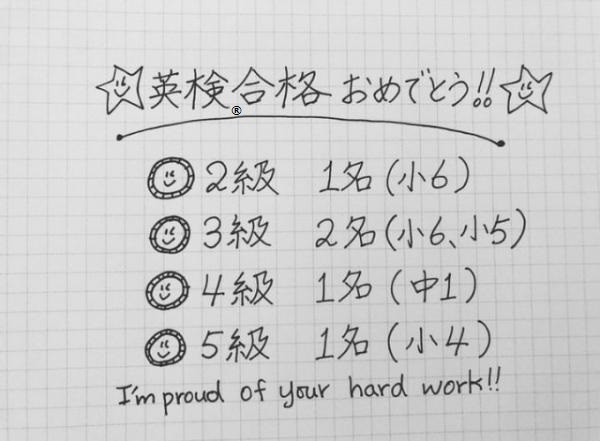 英検®合格 おめでとう!!
2級 1名(小6)
3級 2名(小6、小5)
4級 1名(中1)
5級 1名(小4)
I'm proud of your hard work!!